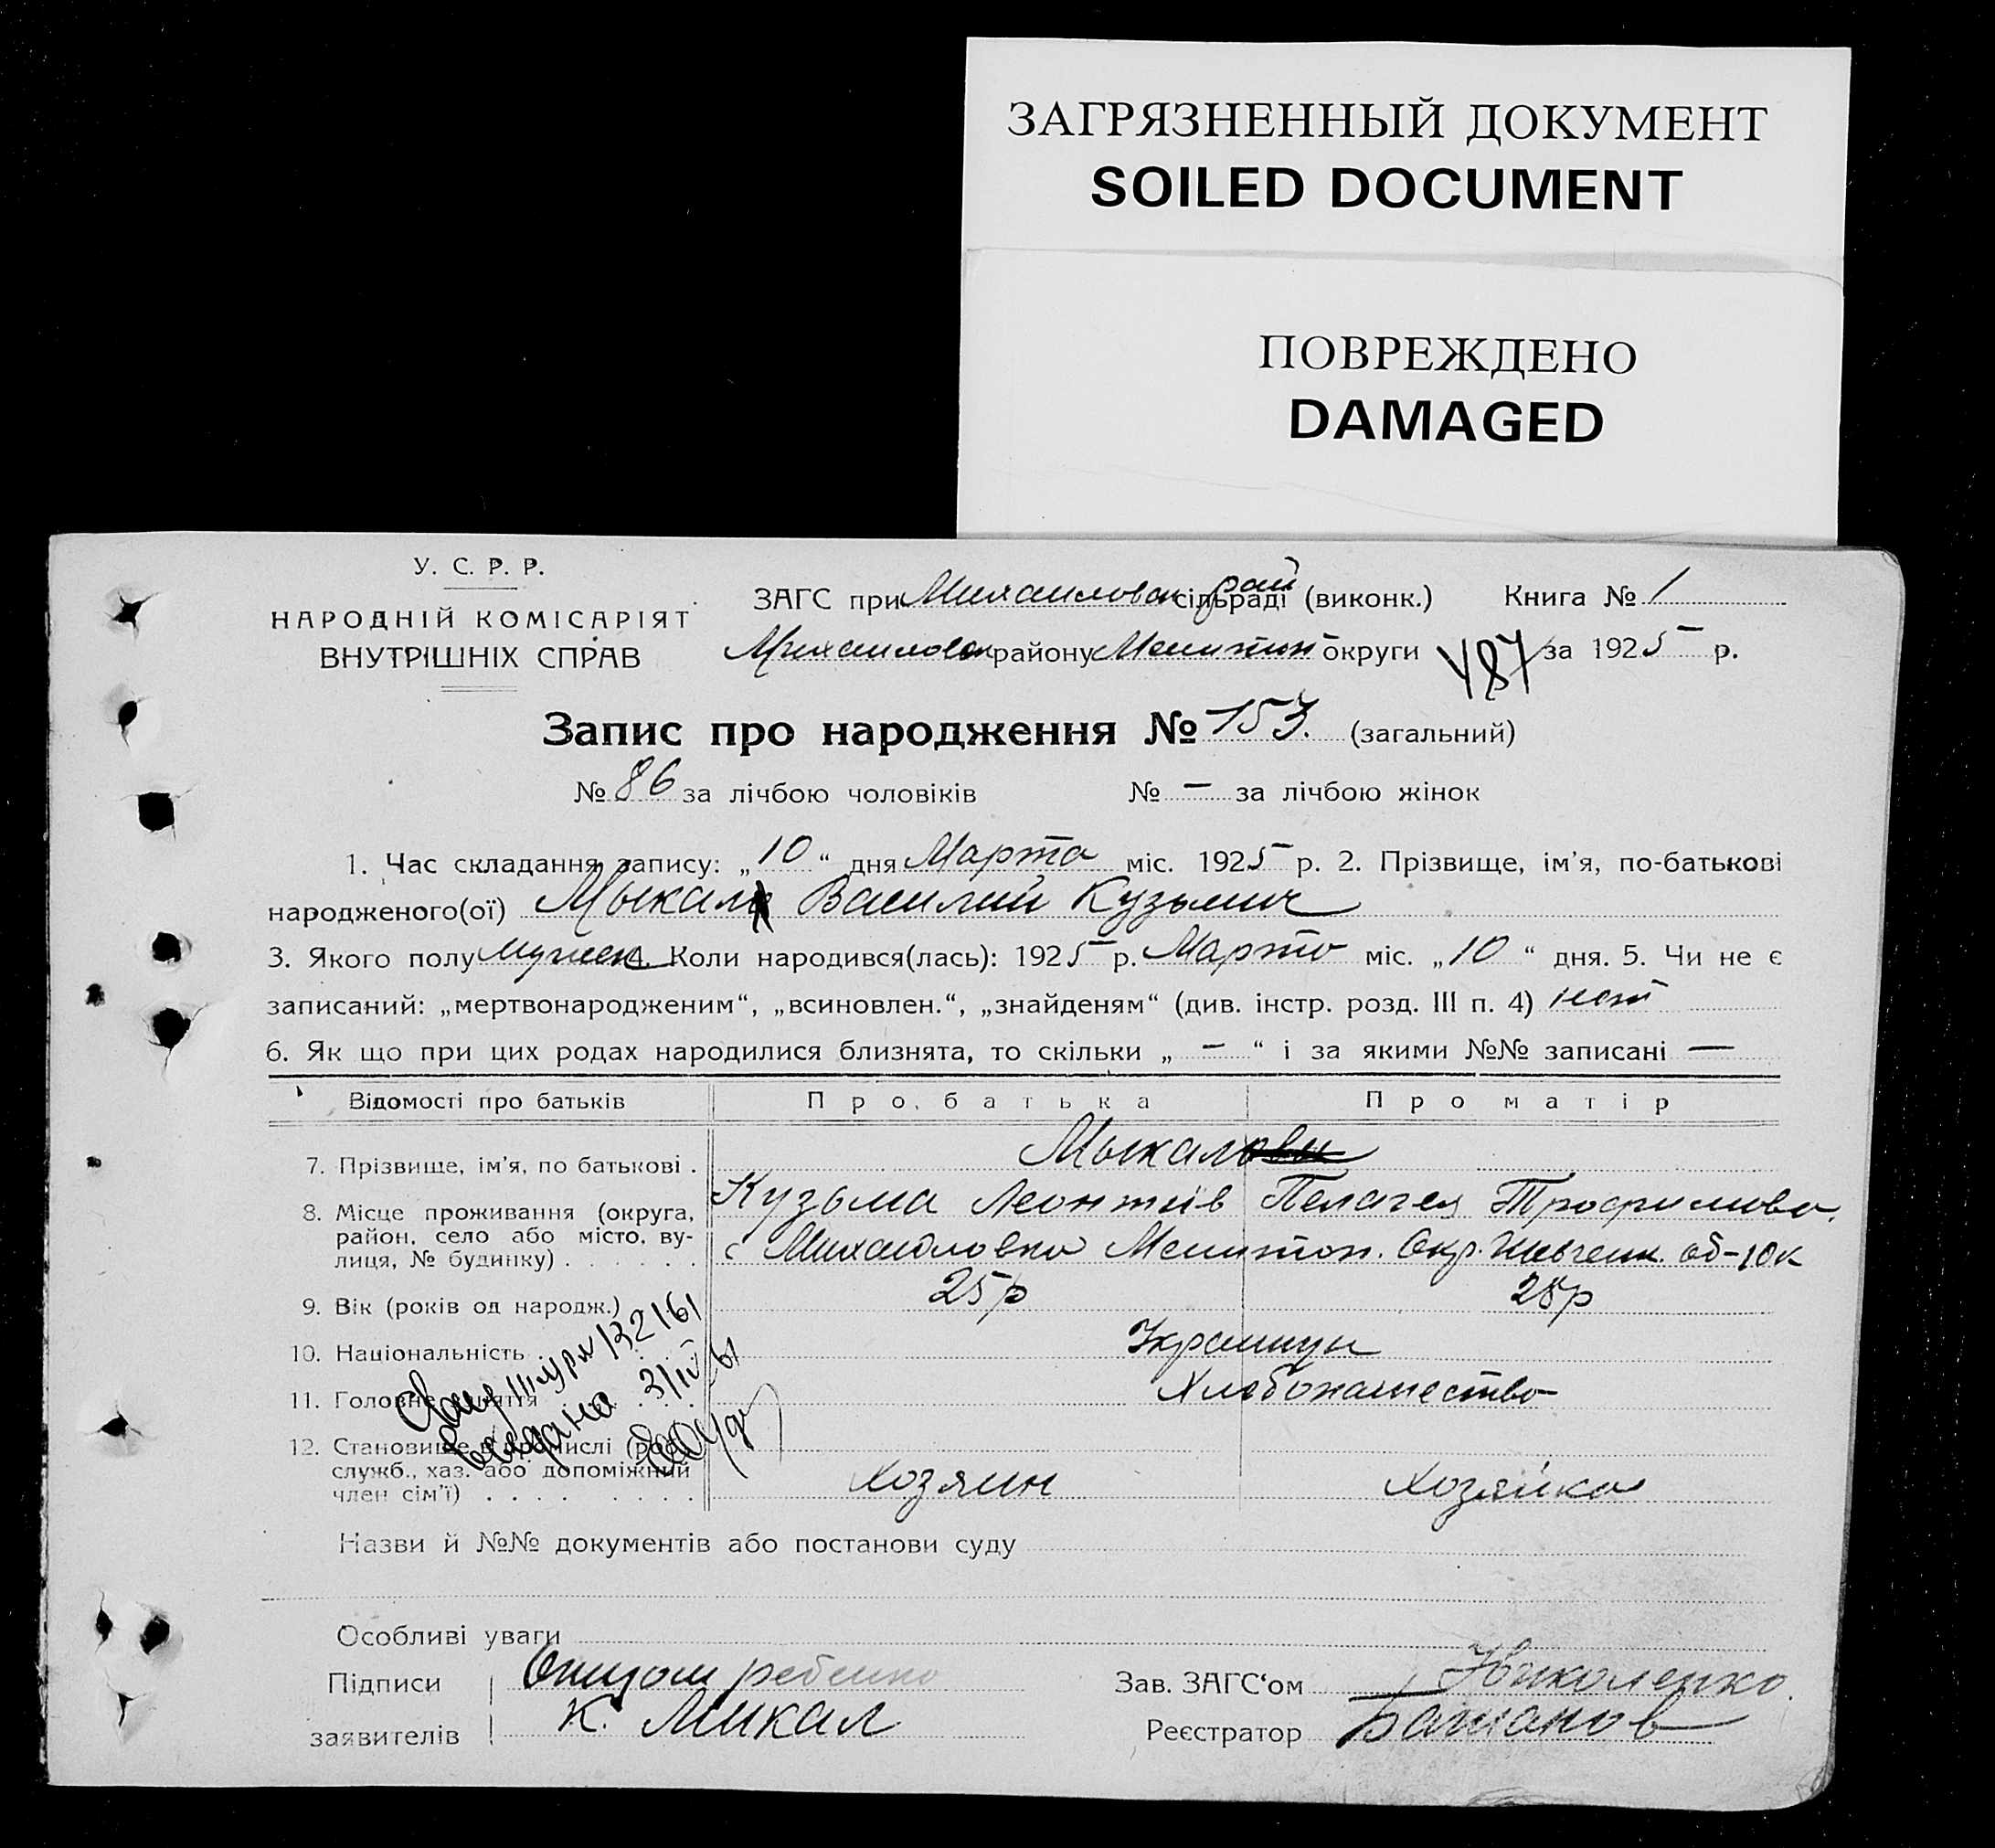 ЗАГРЯЗНЕННЫЙ ДОКУМЕНТ
SOILED DOCUMENT
ПОВРЕЖДЕНО
DAMAGED
У. С. Р. Р.
НАРОДНІЙ КОМІСАРІЯТ
ВНУТРІШНІХ СПРАВ
ЗАГС при Михайловск сільраді рай (виконк.) Книга № 1
Михайловск району Мелитоп округи 487 за 1925 р.
Запис про народження № 153. (загальний)
№ 86 за лічбою чоловіків № — за лічбою жінок
1. Час складання запису: „10“ дня Марта міс. 1925 р. 2. Прізвище, ім'я, по-батькові
народженого(ої) Мыкал Василий Кузьмич
3. Якого полу мужск 4. Коли народився(лась): 1925 р. Марта міс. „10“ дня. 5. Чи не є
записаний: „мертвонародженим“, „всиновлен.“, „знайденям“ (див. інстр. розд. III п. 4) нет
6. Як що при цих родах народилися близнята, то скільки „ — “ і за якими №№ записані —
Відомості про батьків Про батька Про матір
7. Прізвище, ім'я, по батькові . Мыкаловы
Кузьма Леонтіїв Пелагея Трофимова.
8. Місце проживання (округа, район, село або місто, вулиця, № будинку) . . . . . . с Михайловка Мелитоп. Окр. Шевченк. об- 10к
9. Вік (років од народж.) 25р 25р
10. Національність . Украинцы
11. Головне заняття Хлебопашество
12. Становище в промислі (роб.,
служб., хаз. або допоміжний
член сім'ї) . . . . . . . . Хозяин Хозяйка
выдана 3/IV 61
Назви й №№ документів або постанови суду
Особливі уваги
Підписи Отцом ребенка Зав. ЗАГС‘ом Николенко.
заявителів К. Микал Реєстратор Башанов